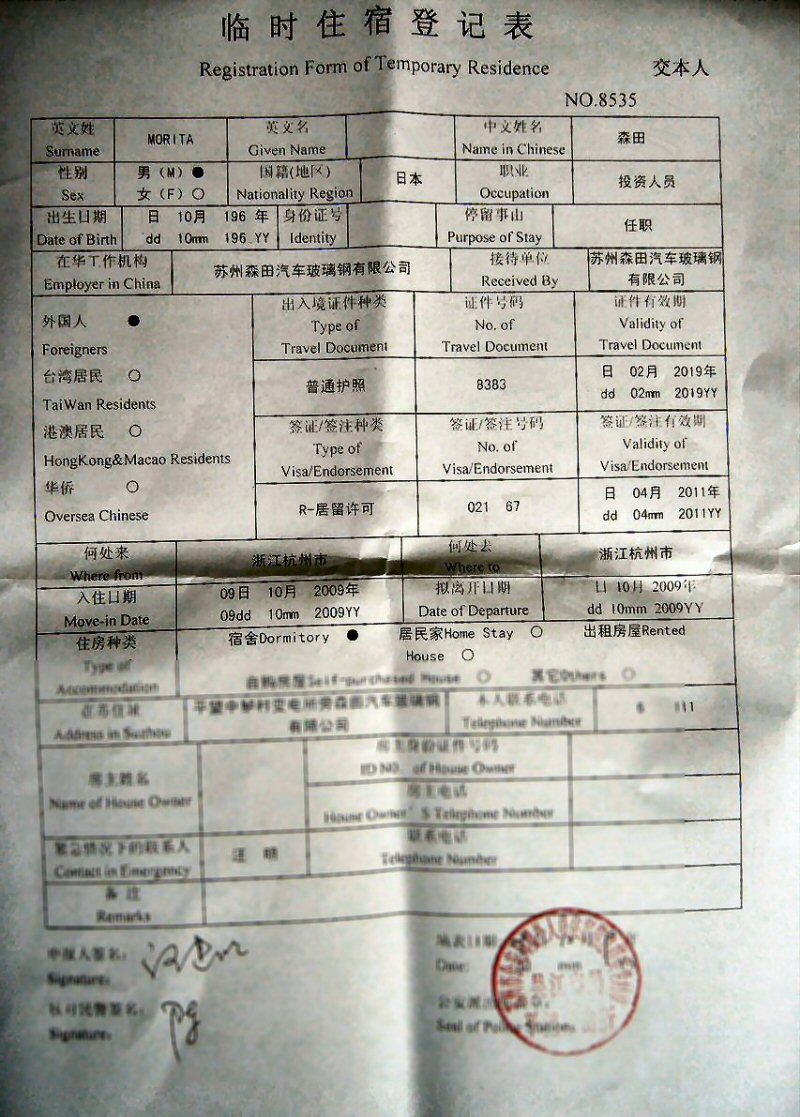 临时住宿登记表
Registration Form of Temporary Residence
交本人
NO.8535
英文姓 Surname
MORITA
英文名 Given Name
中文姓名 Name in Chinese
森田
性别 Sex
男（M）●
女（F）○
国籍(地区)
Nationality Region
日本
职业
Occupation
投资人员
出生日期
Date of Birth
日 10月 196 年
dd 10mm 196 YY
身份证号
Identity
停留事由
Purpose of Stay
任职
在华工作机构
Employer in China
苏州森田汽车玻璃钢有限公司
接待单位
Received By
苏州森田汽车玻璃钢
有限公司
外国人 ●
Foreigners
台湾居民 ○
TaiWan Residents
港澳居民 ○
HongKong&Macao Residents
华侨 ○
Oversea Chinese
出入境证件种类
Type of
Travel Document
证件号码
No. of
Travel Document
证件有效期
Validity of
Travel Document
普通护照
8383
日 02月 2019年
dd 02mm 2019YY
签证/签注种类
Type of
Visa/Endorsement
签证/签注号码
No. of
Visa/Endorsement
签证/签注有效期
Validity of
Visa/Endorsement
R-居留许可
021 67
日 04月 2011年
dd 04mm 2011YY
何处来
Where from
浙江杭州市
何处去
Where to
浙江杭州市
入住日期
Move-in Date
09日 10月 2009年
09dd 10mm 2009YY
拟离开日期
Date of Departure
日 10月 2009年
dd 10mm 2009YY
住房种类
Type of
Accommodation
宿舍Dormitory ● 居民家Home Stay ○ 出租房屋Rented
House ○
自购房屋Self-purchased House ○ 其它Others ○
在苏住址
Address in Suzhou
有限公司
本人联系电话
Telephone Number
111
房主姓名
Name of House Owner
房主身份证件号码
ID NO. of House Owner
房主电话
House Owner' S Telephone Number
紧急情况下的联系人
Contact in Emergency
联系电话
Telephone Number
备注
Remarks
申报人签名:
Signature:
Signature:
填表日期
Date:
mm
Seal of Police Station: